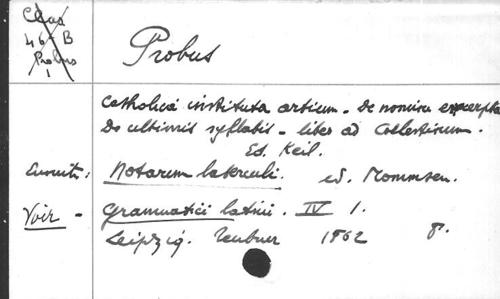 Clas
46-B
Probus
1
Probus
Catholica instituta artium - De nomine excerpta
De ultimis syllabis - liber ad Caelestinum.
Ed. Keil.
Notarum laterculi. ed. Mommsen.
Voir - Grammatici latini. IV 1.
Leipzig. Teubner 1862 8°.